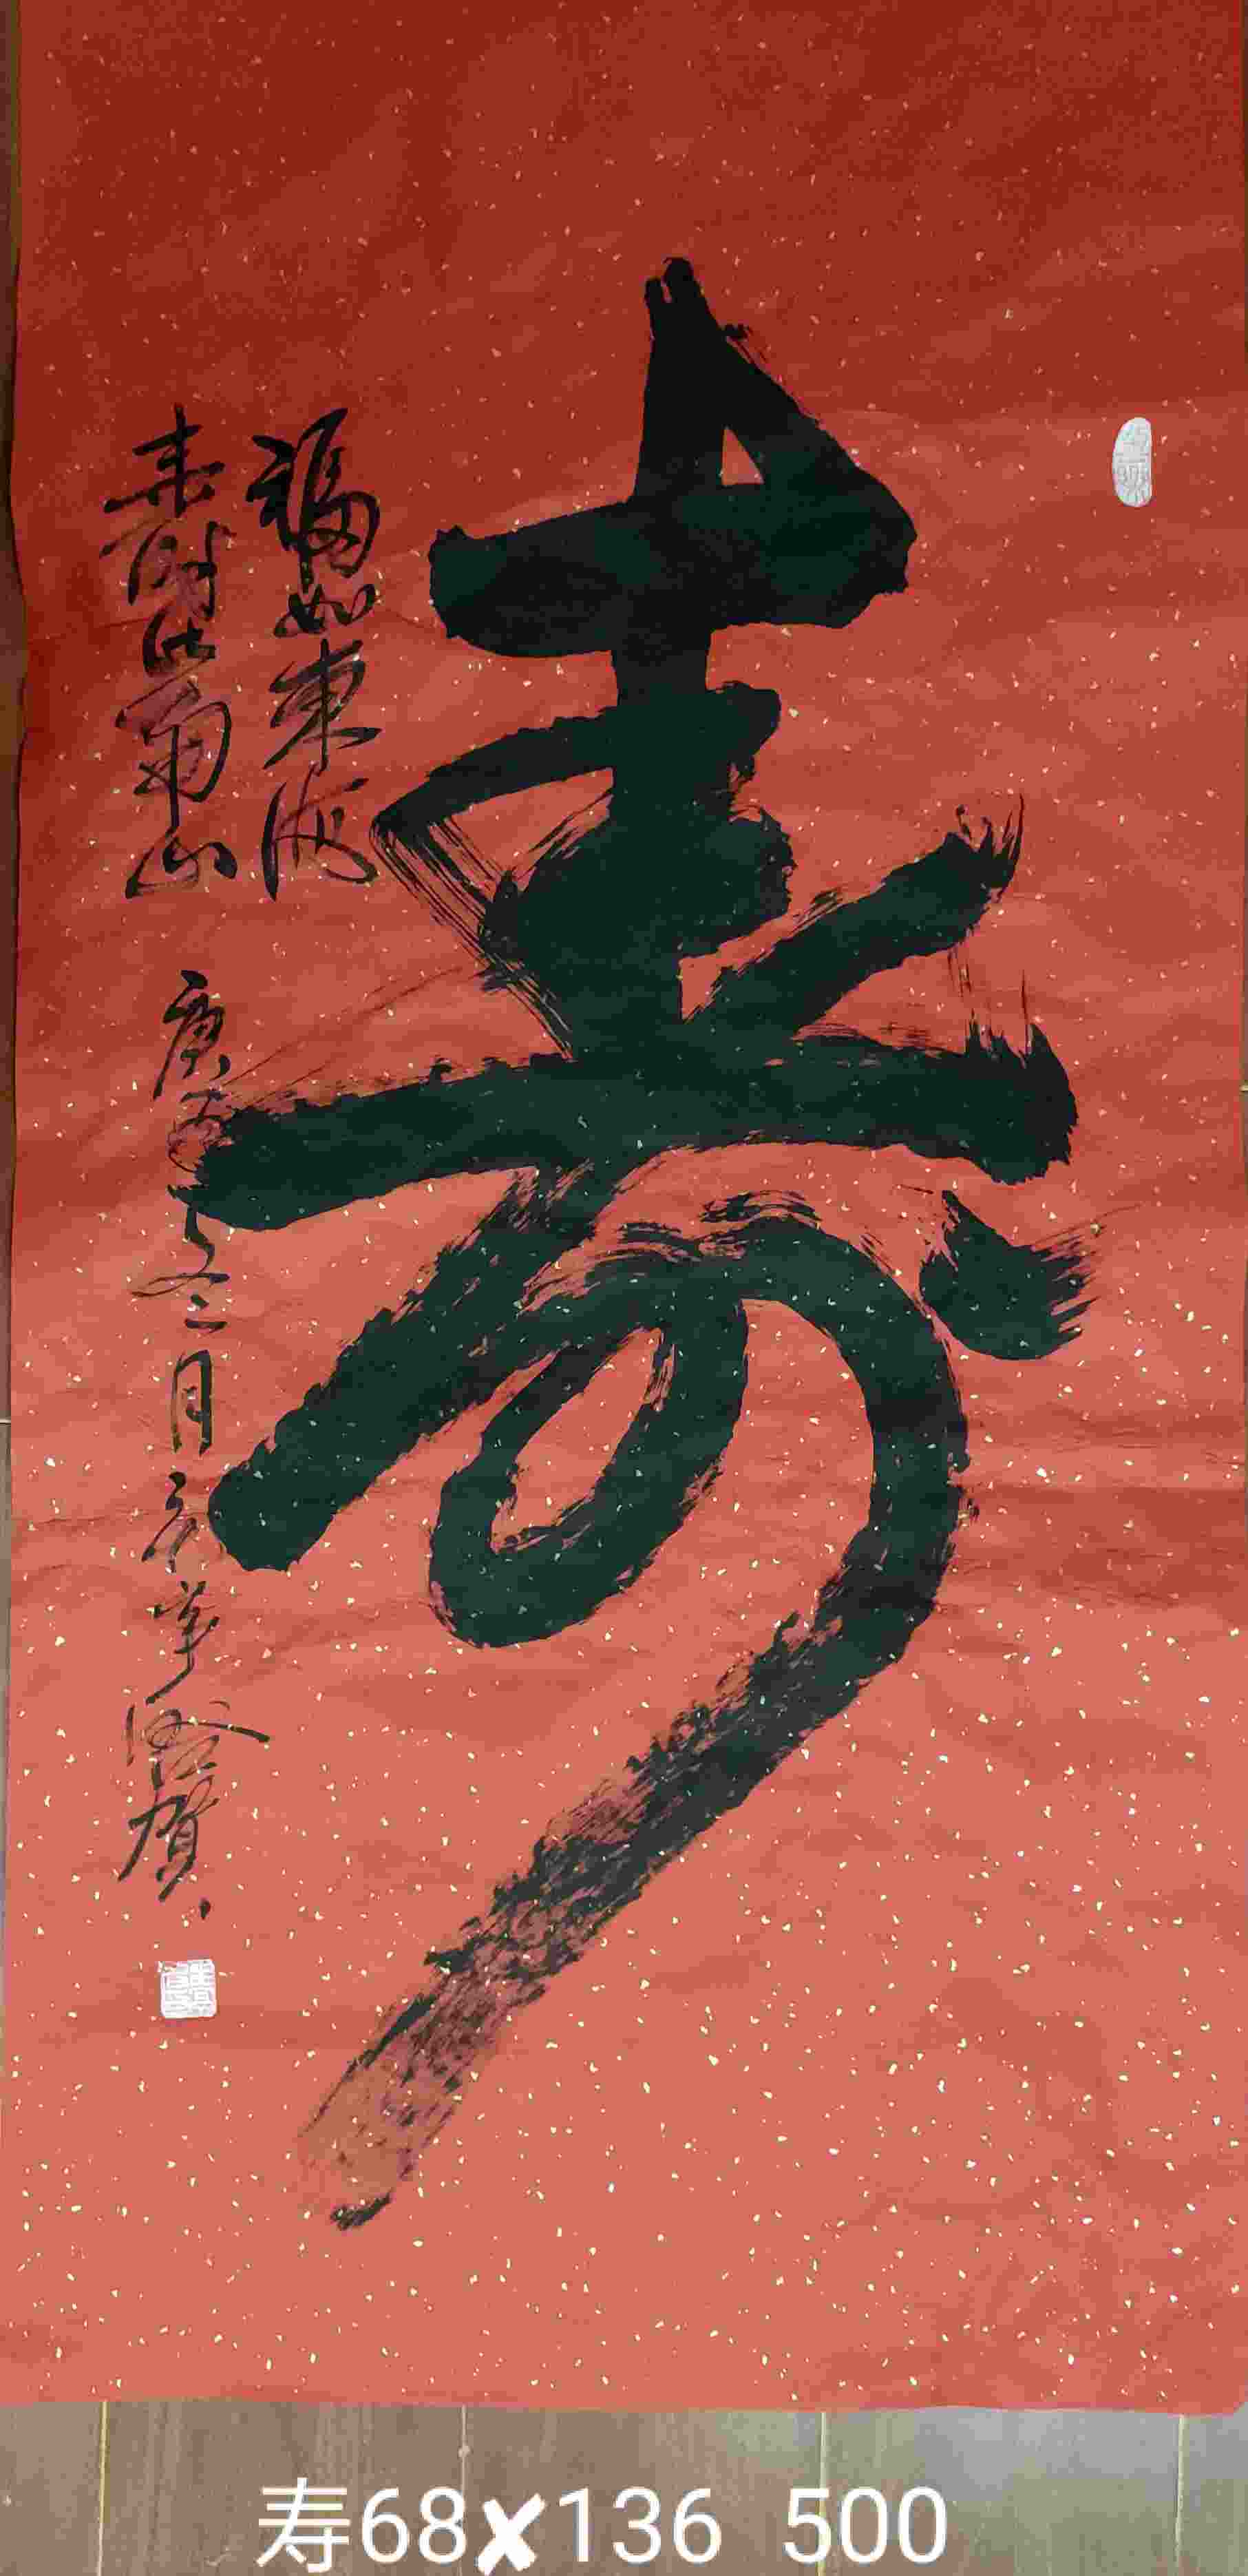 壽
福如東海
壽比南山
庚子冬二月
賀
寿68✘136 500